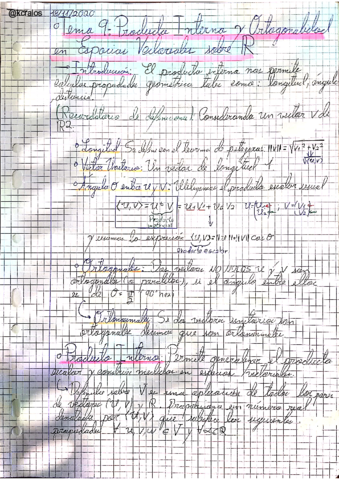 @kcraios 18/11/2020
Tema 9: Producto Interno y Ortogonalidad
en Espacios Vectoriales sobre R
→ Introducción: El producto interno nos permite
calcular propiedades geométricas tales como: longitud, ángulo
distancia.
(Recordatorio de definiciones) Considerando un vector V de
R2.
Longitud: Se define con el teorema de pitágoras ||V|| = √V₁² + V₂²
Vector Unitario: Un vector de longitud 1
Ángulo θ entre U y V: Utilizamos el producto escalar usual
(U,V) = U · V = U₁V₁ + U₂V₂
Producto
y usamos la expresión (U,V) = ||U|| ||V|| cos θ
Producto escalar
Ortogonales: Dos vectores u y v son
ortogonales o si el ángulo entre ellos
es de θ = π/2 90°
↳ Ortonormales: Si dos vectores unitarios son
ortogonales decimos que son ortonormales
Producto Interno: Permite generalizar el producto
escalar y en espacios vectoriales
↳ Definido sobre V es una aplicación de todos los pares
de vectores (U,V) y R. un número real
denotado por (U,V) que las siguientes
propiedades ∀ u,v,w ∈ V y ∀α∈R